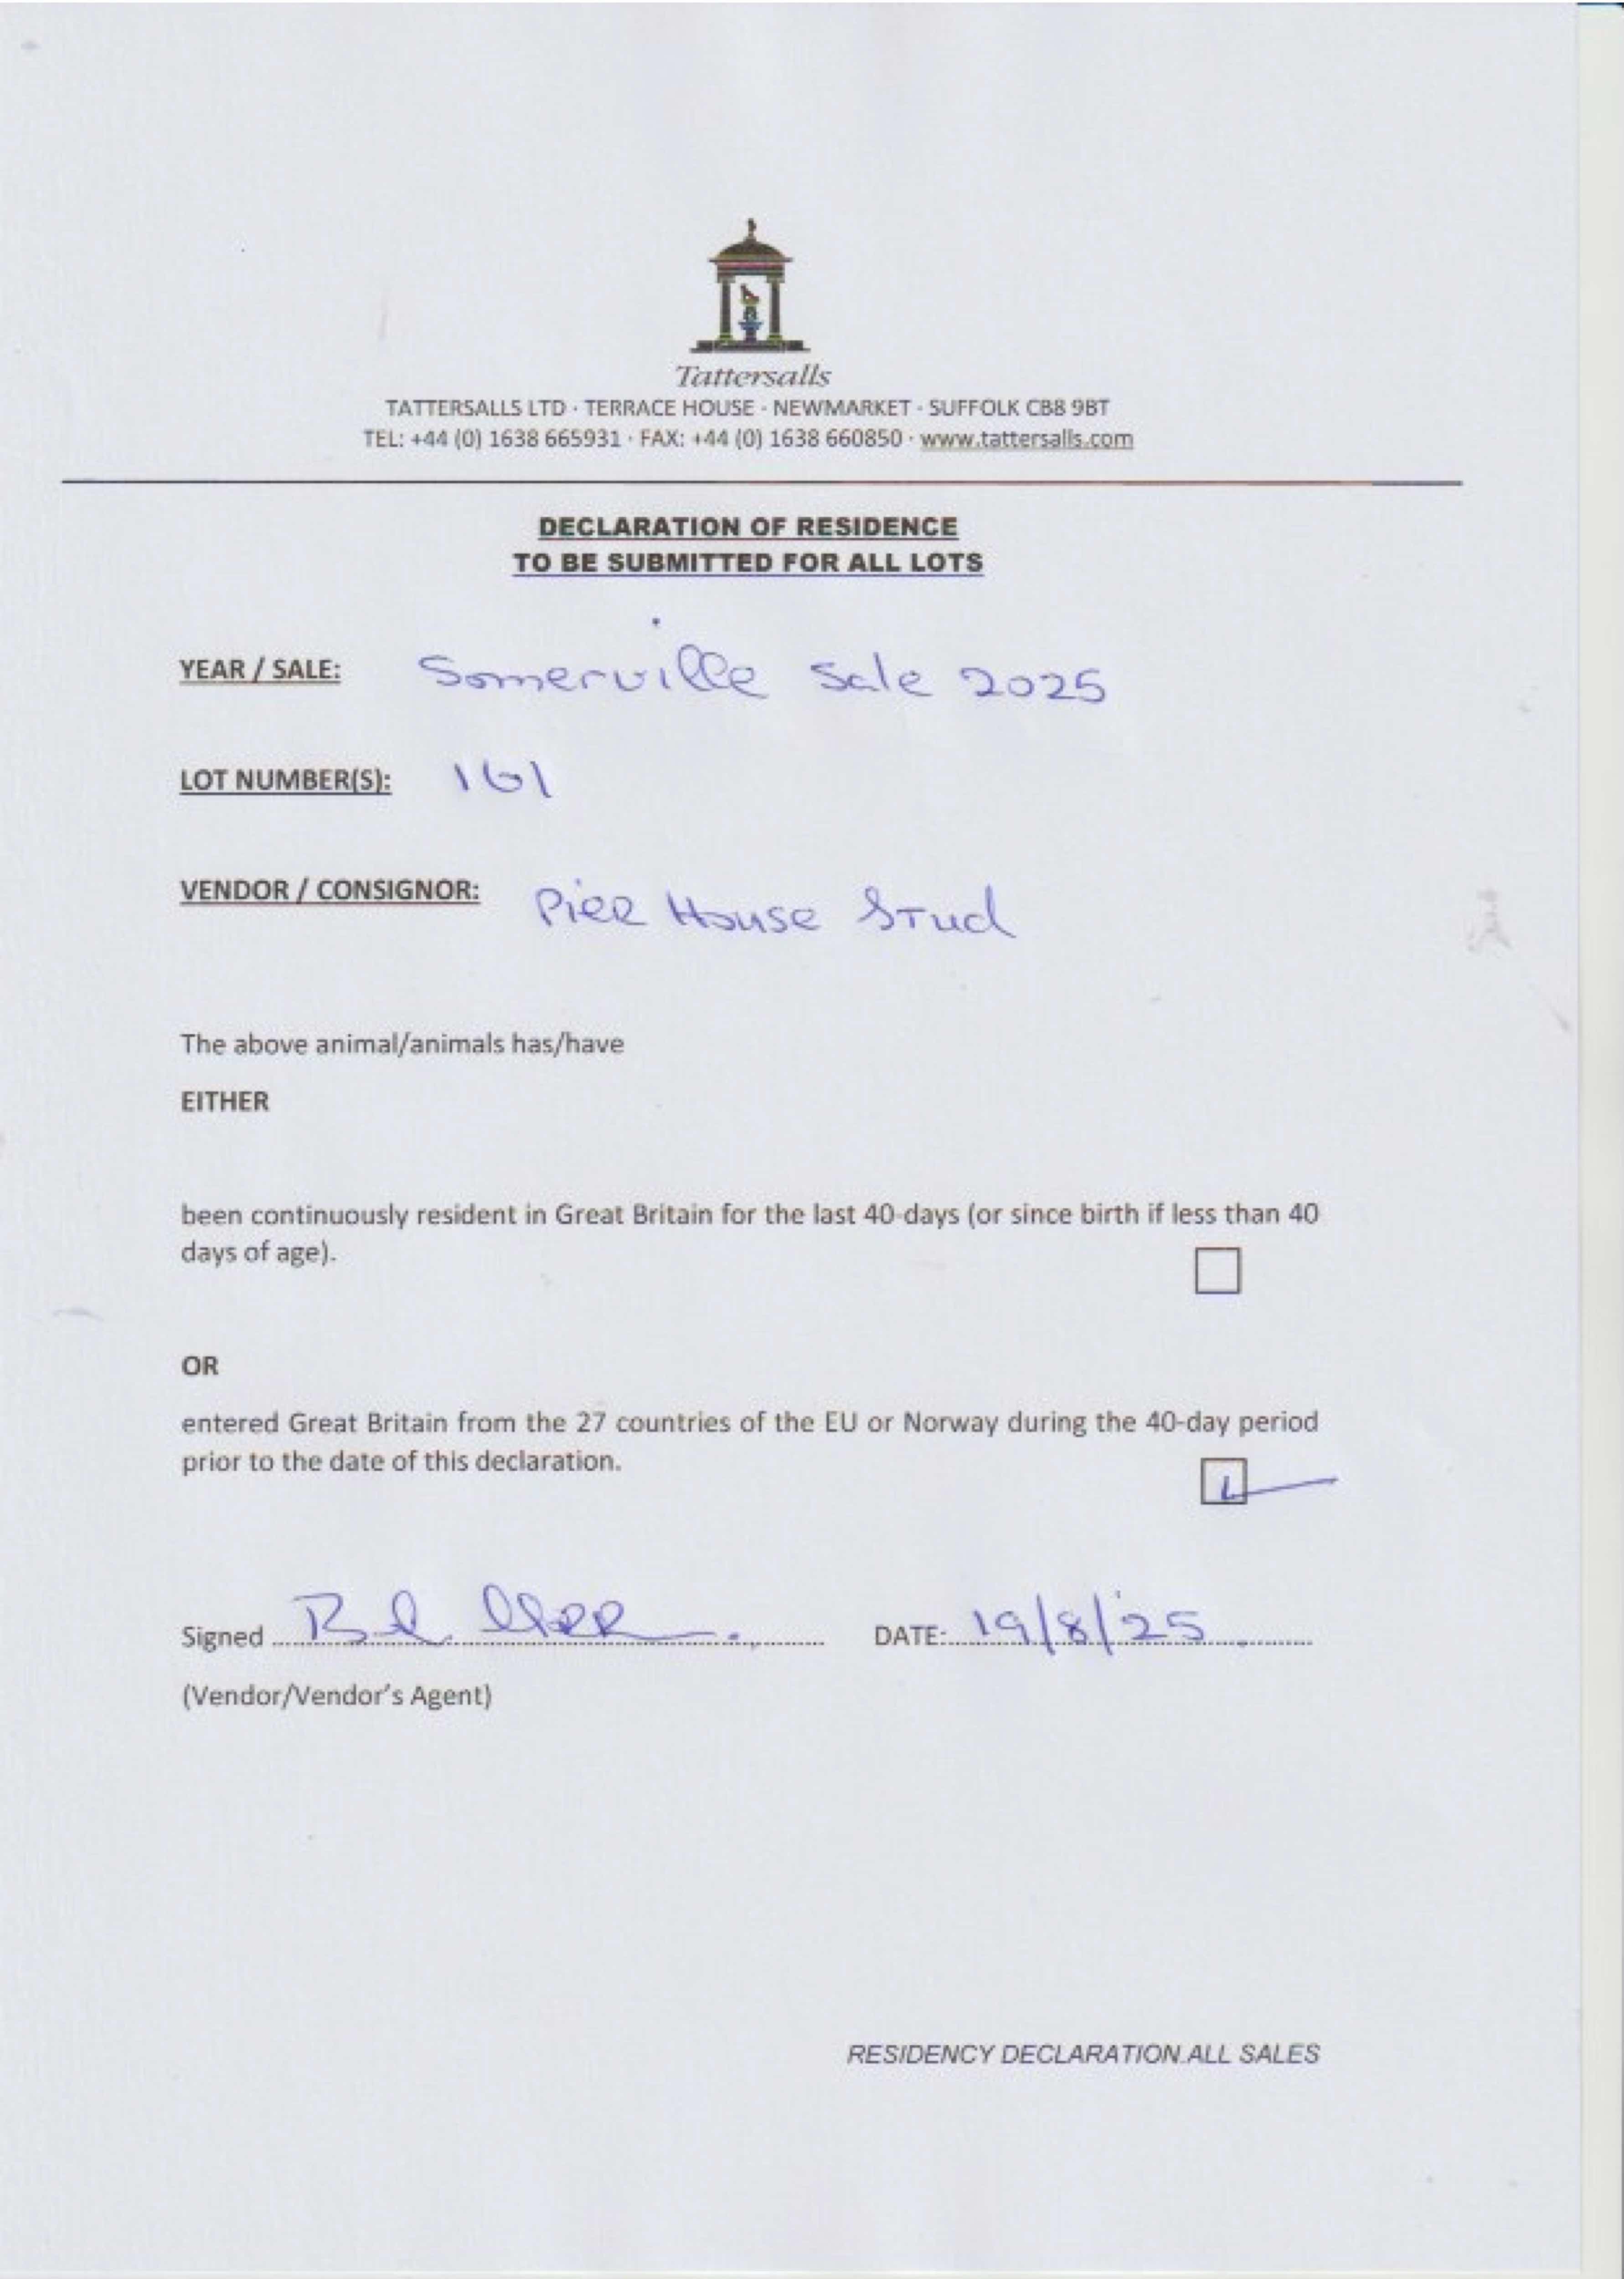 Tattersalls
TATTERSALLS LTD · TERRACE HOUSE · NEWMARKET · SUFFOLK CB8 9BT
TEL: +44 (0) 1638 665931 · FAX: +44 (0) 1638 660850 · www.tattersalls.com
DECLARATION OF RESIDENCE
TO BE SUBMITTED FOR ALL LOTS
YEAR / SALE: Somerville Sale 2025
LOT NUMBER(S): 161
VENDOR / CONSIGNOR: Pier House Stud
The above animal/animals has/have
EITHER
been continuously resident in Great Britain for the last 40-days (or since birth if less than 40
days of age).
OR
entered Great Britain from the 27 countries of the EU or Norway during the 40-day period
prior to the date of this declaration.
Signed DATE: 19/8/25
(Vendor/Vendor's Agent)
RESIDENCY DECLARATION.ALL SALES